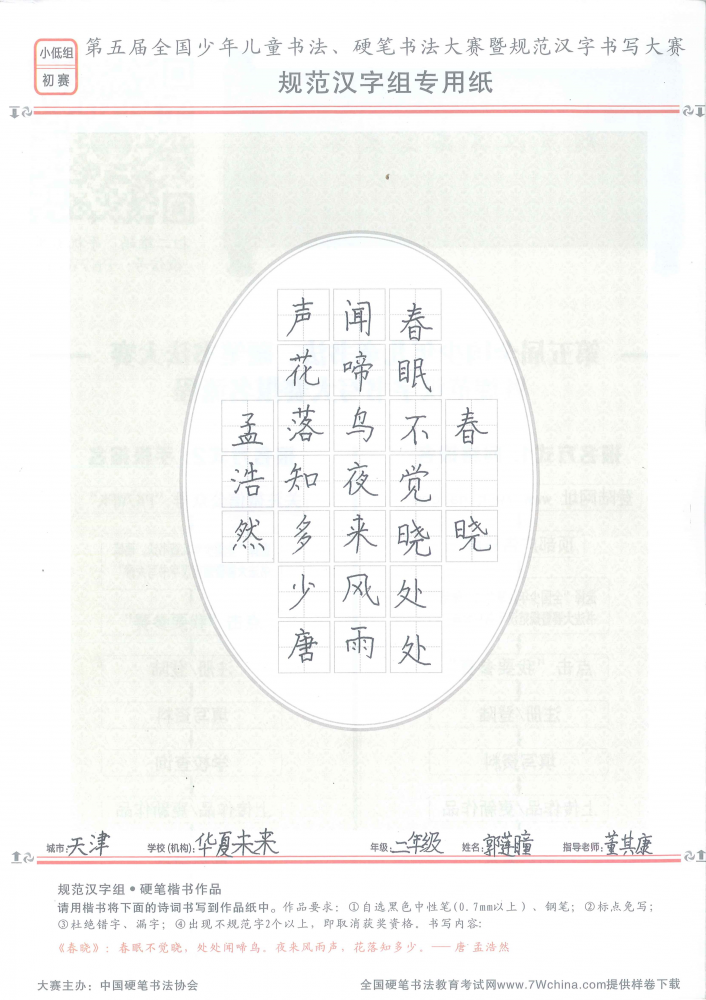 小低组
初赛
第五届全国少年儿童书法、硬笔书法大赛暨规范汉字书写大赛
规范汉字组专用纸
春晓
春眠不觉晓处处
闻啼鸟夜来风雨
声花落知多少唐
孟浩然
城市：天津 学校(机构)：华夏未来 年级：二年级 姓名：郭莲瞳 指导老师：董其康
规范汉字组●硬笔楷书作品
请用楷书将下面的诗词书写到作品纸中。作品要求：①自选黑色中性笔(0.7mm以上)、钢笔；②标点免写；
③杜绝错字、漏字；④出现不规范字2个以上，即取消获奖资格。书写内容：
《春晓》：春眠不觉晓，处处闻啼鸟。夜来风雨声，花落知多少。——唐·孟浩然
大赛主办：中国硬笔书法协会
全国硬笔书法教育考试网www.7Wchina.com提供样卷下载